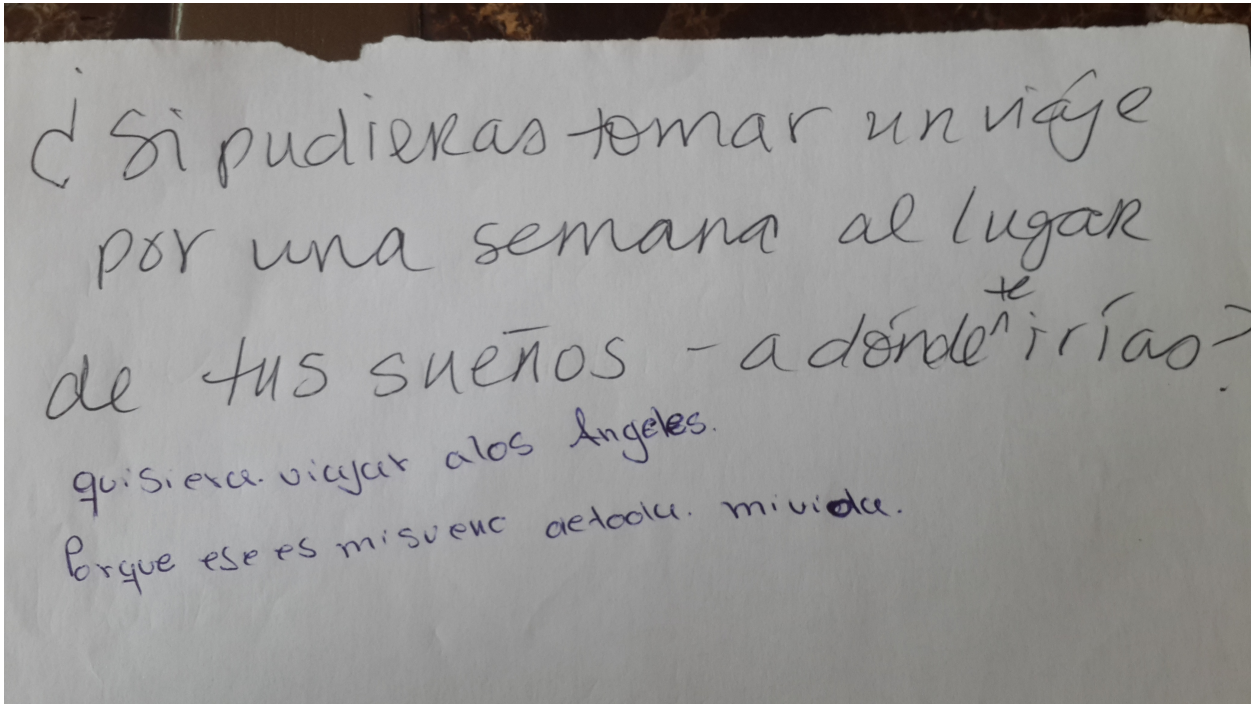 ¿Si pudieras tomar un viaje
por una semana al lugar
de tus sueños - a dónde te irías?
quisiera. viajar alos Ángeles.
Porque ese es misueno detoda. mivida.